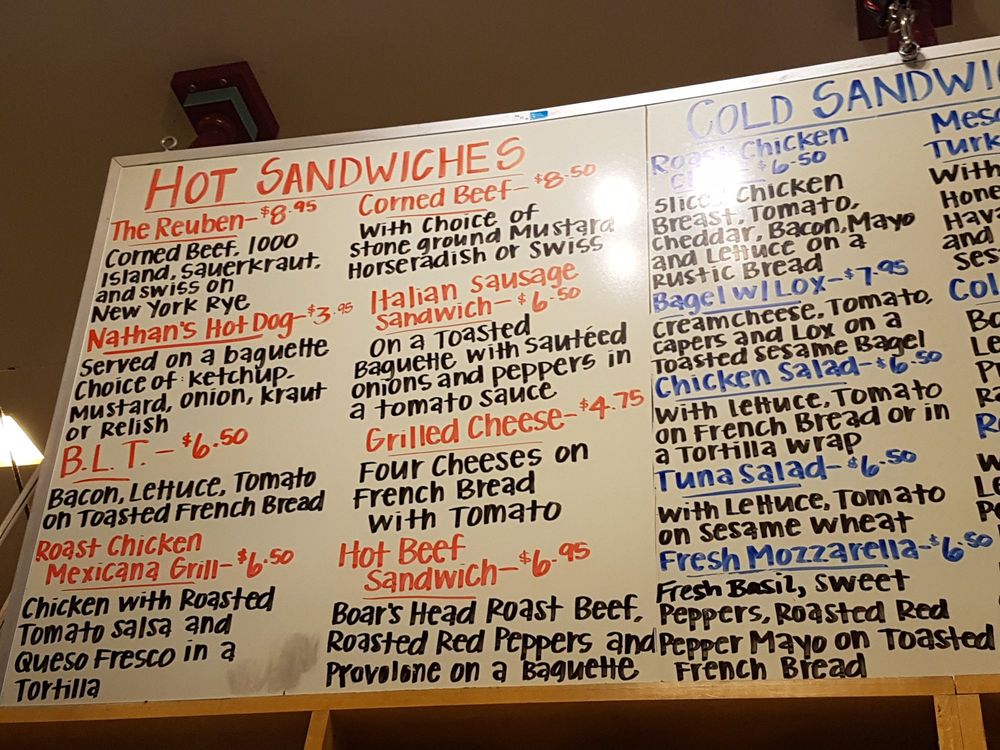 HOT SANDWICHES
The Reuben-$8.95
Corned Beef, 1000
Island, Sauerkraut,
and swiss on
New York Rye
Nathan's Hot Dog-$3.95
Served on a baguette
Choice of: ketchup.
Mustard, onion, kraut
or Relish
B.L.T. - $6.50
Bacon, Lettuce, Tomato
on Toasted French Bread
Roast Chicken
Mexicana Grill-$6.50
Chicken with Roasted
Tomato salsa and
Queso Fresco in a
Tortilla
Corned Beef-$8.50
With Choice of
Stone ground Mustard
Horseradish or Swiss
Italian Sausage
Sandwich-$6.50
on a Toasted
Baguette with sautéed
onions and peppers in
a tomato sauce
Grilled Cheese-$4.75
Four Cheeses on
French Bread
With Tomato
Hot Beef
Sandwich-$6.95
Boar's Head Roast Beef,
Roasted Red Peppers and
Provolone on a Baguette
COLD SANDWIC
Roast Chicken
$6.50
Sliced Chicken
Breast, Tomato,
Cheddar, Bacon, Mayo
and Lettuce on a
Rustic Bread
Bagel w/Lox-$7.95
Creamcheese, Tomato,
Capers and Lox on a
Toasted sesame Bagel
Chicken Salad-$6.50
with Lettuce, Tomato
on French Bread or in
a Tortilla wrap
Tuna Salad-$6.50
with Lettuce, Tomato
on Sesame Wheat
Fresh Mozzarella-$6.50
Fresh Basil, sweet
Peppers, Roasted Red
Pepper Mayo on Toasted
French Bread
Mesq
Turk
With
Hone
Hava
and
Ses
Col
Le